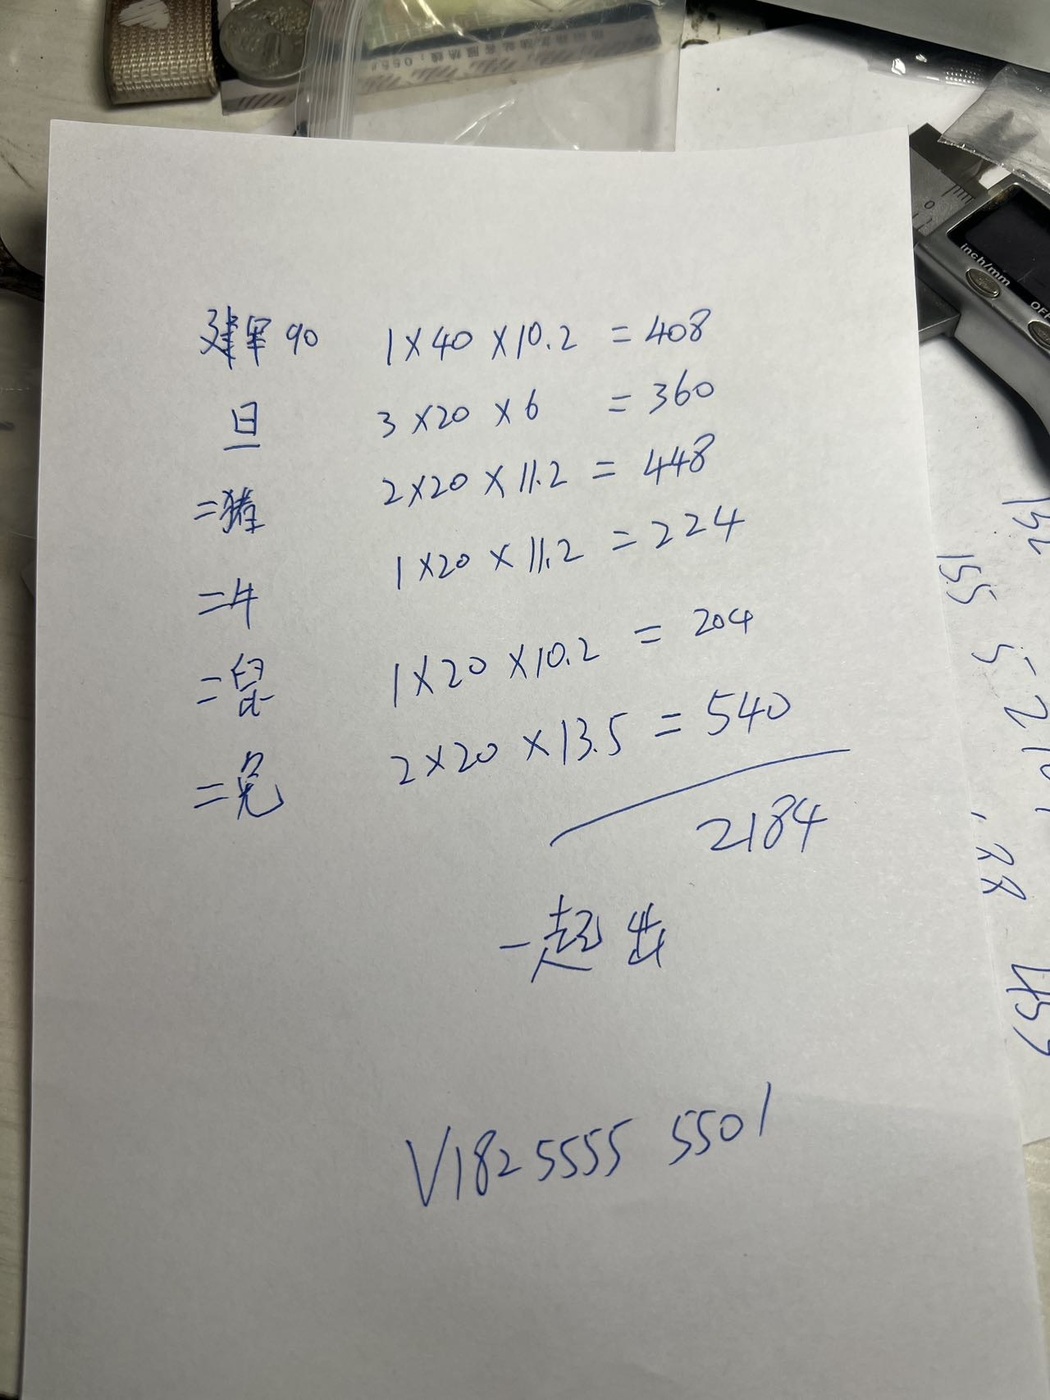 建军90 1×40×10.2 =408
旦 3×20×6 =360
=猪 2×20×11.2=448
=牛 1×20×11.2=224
=鼠 1×20×10.2=204
=兔 2×20×13.5=540
2184
一起出
V182 5555 5501
inch/mm
OFF
0
155